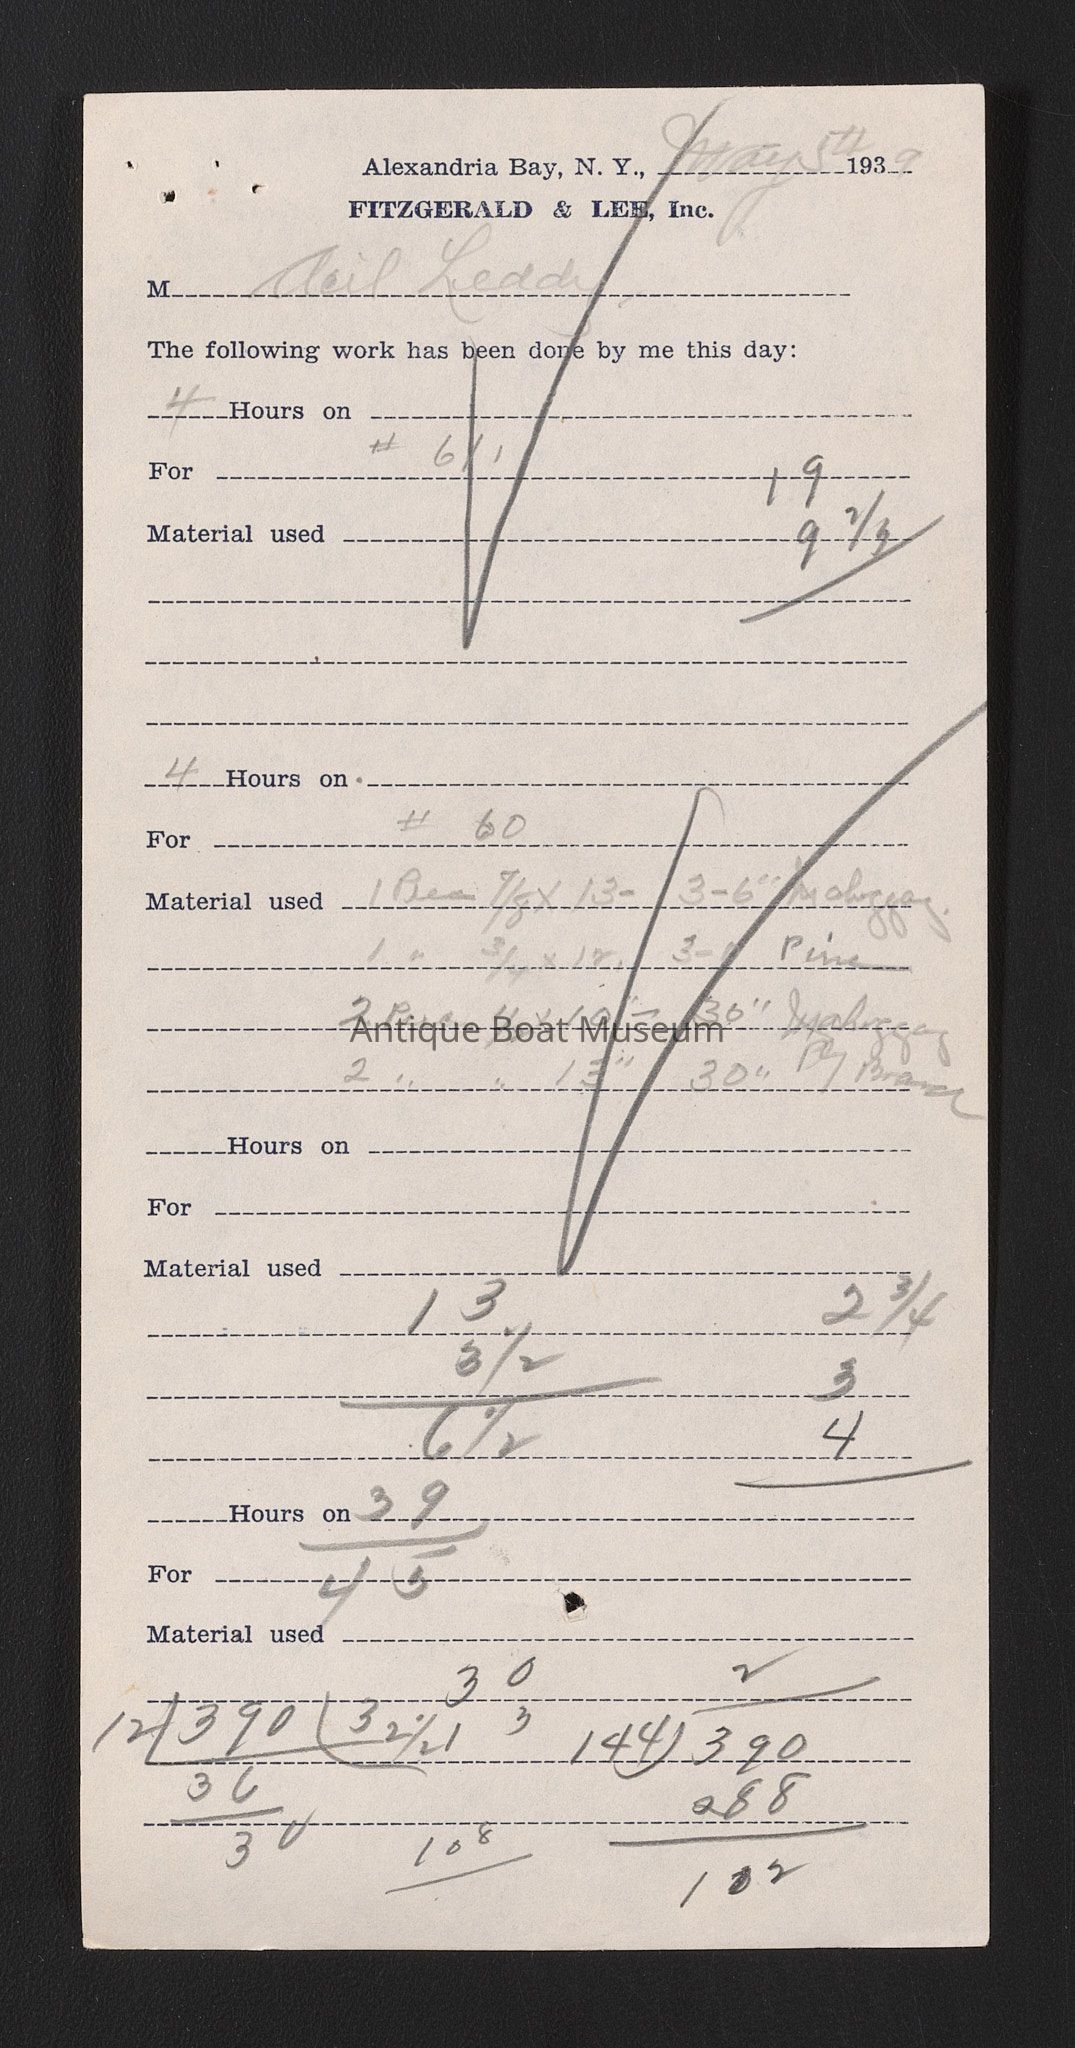 Alexandria Bay, N. Y., May 5th 1939
FITZGERALD & LEE, Inc.
M Neil Leddy
The following work has been done by me this day:
4 Hours on
For # 611
19
Material used 9 2/3
4 Hours on
For # 60
Material used 1 7/8 x 13 - 3-6" Mahogany
1 " 3/4 x 12, Pine
2 30" Mahogany
Antique Boat Museum
2 " " 13" 30" Ply
Hours on
For
Material used
13 2 3/4
3 1/2 3
6 1/2 4
Hours on 39
For 45
Material used
30 2
12 390 32 1/2 13 144 ) 390
36 288
30 108 102